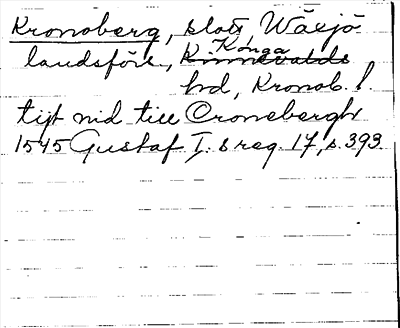 Kronoberg, slott, Wäxjö
landsförs., Konga
Kinnevalds
hd, Kronob. l.
tijt nid till Cronebergh
1545 Gustaf I:s reg. 17, s. 393.